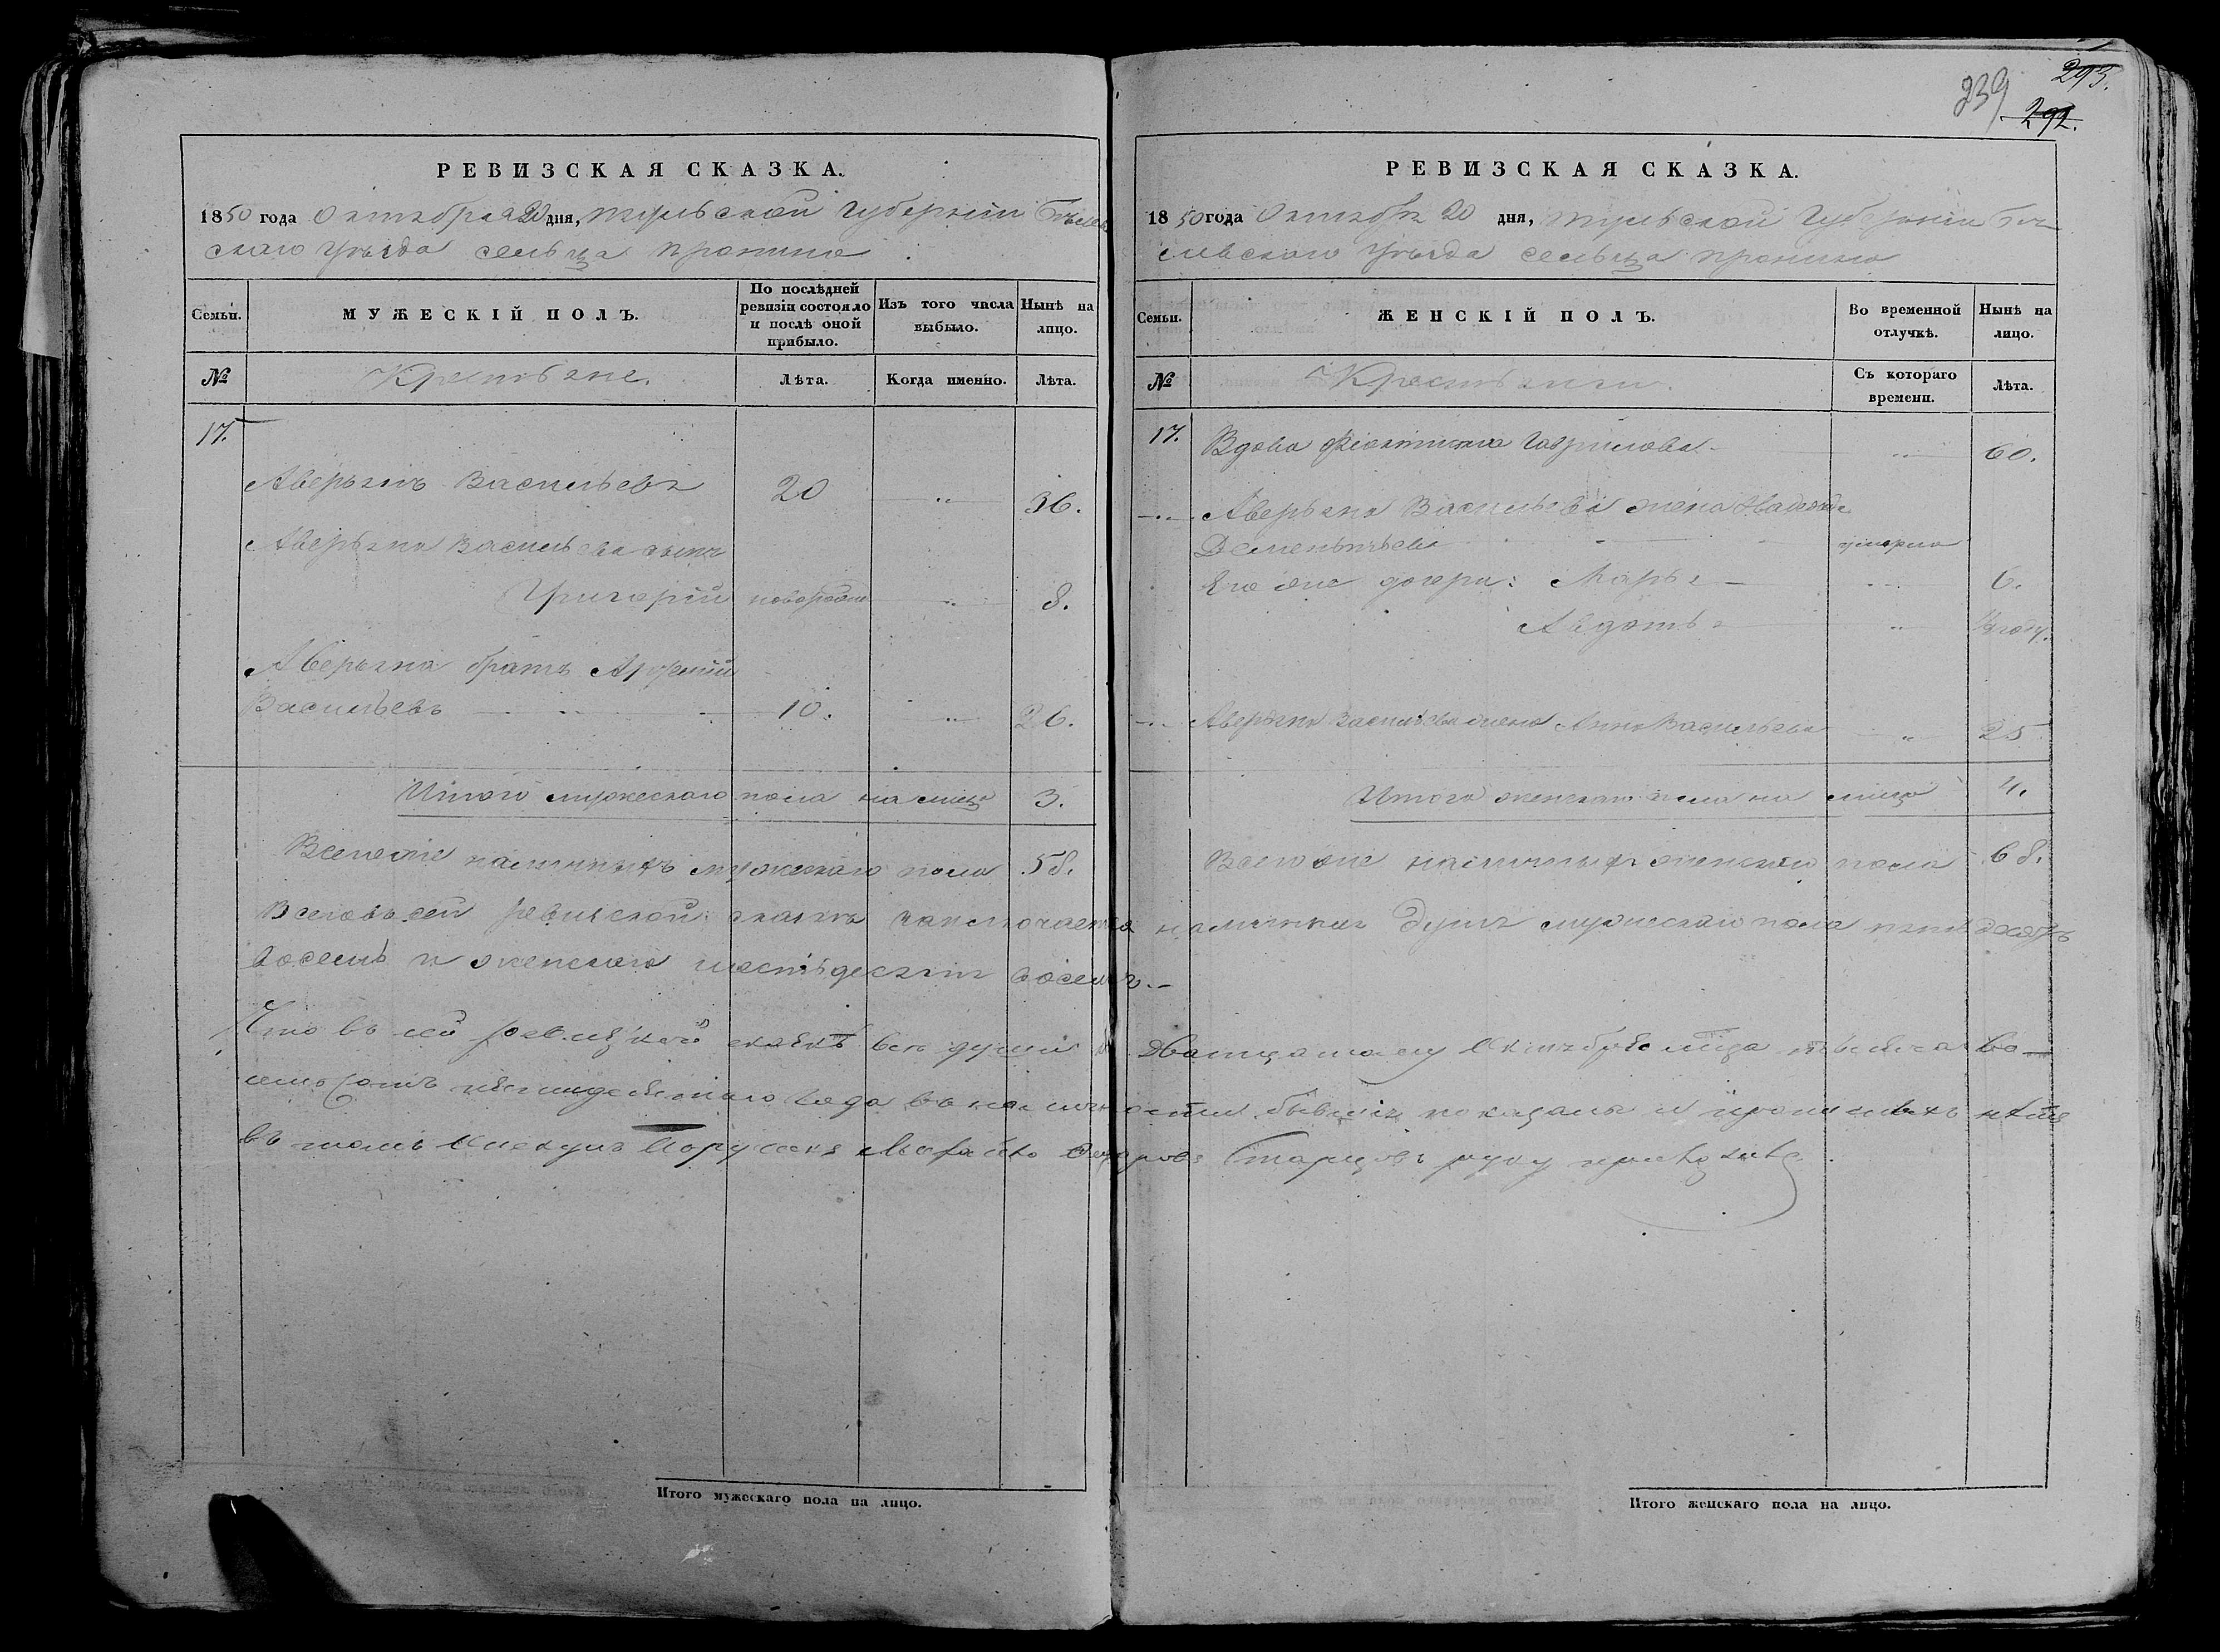 РЕВИЗСКАЯ СКАЗКА.
1850 года Октября 20 дня, Тульской Губернiи Бѣлев
скаго Уѣзда сельца Пронина
Семьи.
МУЖЕСКIЙ ПОЛЪ.
По послѣдней ревизiи состояло и послѣ оной прибыло.
Изъ того числа выбыло.
Нынѣ на лицо.
№
Крестьяне.
Лѣта.
Когда именно.
Лѣта.
17.
Аверьянъ Васильевъ 20 " 36.
Аверьяна Васильева сынъ
Григорiй новорожд " 8.
Аверьяна братъ
Васильевъ 10. " 26.
Итого мужескаго пола на лицо 3.
Всего же наличныхъ мужескаго пола 58.
293.
292.
239
РЕВИЗСКАЯ СКАЗКА.
1850 года Октября 20 дня, Тульской Губернiи Бѣ
левскаго Уѣзда сельца Пронина
Семьи.
ЖЕНСКIЙ ПОЛЪ.
Во временной отлучкѣ.
Нынѣ на лицо.
№
Крестьянки.
Съ котораго времени.
Лѣта.
17. Вдова Гаврилова " 60.
Аверьяна Васильева жена
Дементьева умерла
Его же дочери: Марья " 6.
Авдотья " году.
Аверьяна Васильева жена Анна Васильева " 25
Итого женскаго пола на лицо 4.
Всего же наличныхъ женскаго пола 68.
Всего въ сей ревизской сказкѣ заключается наличныхъ душъ мужескаго пола пятьдесятъ
восемь и женскаго шестьдесятъ восемь.
Что въ сей ревизкой сказкѣ все души к Двацатому Октября мца тысяча во
семь сотъ пятидесятаго года въ наличности бывшiя показаны и прописныхъ нѣтъ
въ томъ Опекунъ Порутчикъ Старцовъ руку приложилъ.
Итого мужескаго пола на лицо.
Итого женскаго пола на лицо.